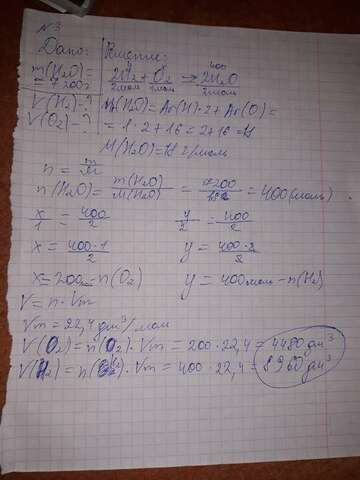 №3
Дано: Решение:
m(H₂O)= 400
7200г 2H₂ + O₂ → 2H₂O
2моль 1моль 2моль
V(H₂)-? Mr(H₂O)=Ar(H)·2+Ar(O)=
V(O₂)-? =1·2+16=2+16=18
M(H₂O)=18 г/моль
n = m/M
n(H₂O) = m(H₂O)/M(H₂O) = 7200/18 = 400(моль)
x/1 = 400/2 y/2 = 400/2
x = 400·1/2 y = 400·2/2
x=200моль-n(O₂) y = 400моль-n(H₂)
V=n·Vm
Vm=22,4дм³/моль
V(O₂)=n(O₂)·Vm=200·22,4=4480дм³
V(H₂)=n(H₂)·Vm=400·22,4=8960дм³